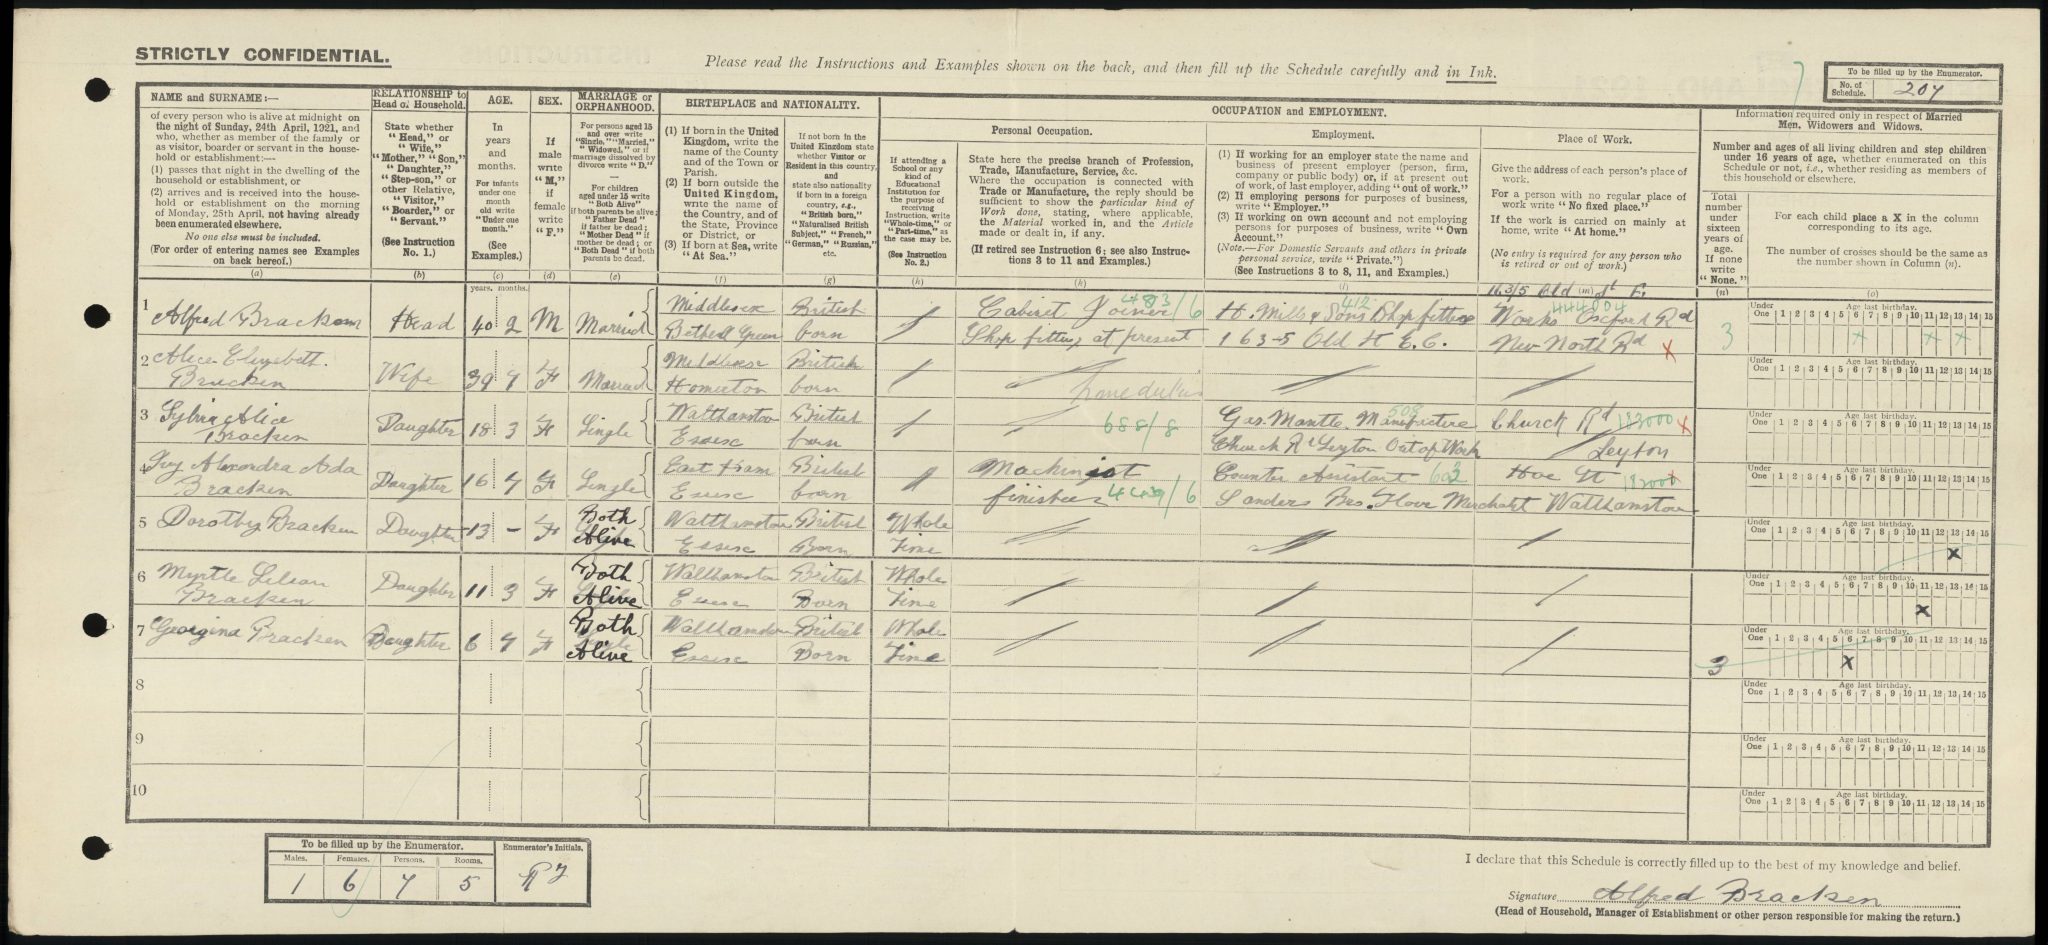 STRICTLY CONFIDENTIAL.
Please read the Instructions and Examples shown on the back, and then fill up the Schedule carefully and in Ink.
To be filled up by the Enumerator.
No. of Schedule. 207
NAME and SURNAME:—
of every person who is alive at midnight on
the night of Sunday, 24th April, 1921, and
who, whether as member of the family or
as visitor, boarder or servant in the house-
hold or establishment:—
(1) passes that night in the dwelling of the
household or establishment, or
(2) arrives and is received into the house-
hold or establishment on the morning
of Monday, 25th April, not having already
been enumerated elsewhere.
No one else must be included.
(For order of entering names see Examples
on back hereof.)
(a)
RELATIONSHIP to
Head of Household.
State whether
"Head," or
"Wife,"
"Mother," "Son,"
"Daughter,"
"Step-son," or
other Relative,
"Visitor,"
"Boarder," or
"Servant."
(See Instruction
No. 1.)
(b)
AGE.
In
years
and
months.
For infants
under one
month
old write
"Under one
month."
(See
Examples.)
(c)
years. months.
SEX.
If
male
write
"M,"
if
female
write
"F."
(d)
MARRIAGE or
ORPHANHOOD.
For persons aged 15
and over write
"Single," "Married,"
"Widowed," or if
marriage dissolved by
divorce write "D."
For children
aged under 15 write
"Both Alive"
if both parents be alive;
"Father Dead"
if father be dead;
"Mother Dead" if
mother be dead; or
"Both Dead" if both
parents be dead.
(e)
BIRTHPLACE and NATIONALITY.
(1) If born in the United
Kingdom, write the
name of the County
and of the Town or
Parish.
(2) If born outside the
United Kingdom,
write the name of
the Country, and of
the State, Province
or District, or
(3) If born at Sea, write
"At Sea."
(f)
If not born in the
United Kingdom state
whether Visitor or
Resident in this country,
and
state also nationality
if born in a foreign
country, e.g.,
"British born,"
"Naturalised British
Subject," "French,"
"German," "Russian,"
etc.
(g)
OCCUPATION and EMPLOYMENT.
If attending a
School or any
kind of
Educational
Institution for
the purpose of
receiving
Instruction, write
"Whole-time," or
"Part-time," as
the case may be.
(See Instruction
No. 2.)
(h)
Personal Occupation.
State here the precise branch of Profession,
Trade, Manufacture, Service, &c.
Where the occupation is connected with
Trade or Manufacture, the reply should be
sufficient to show the particular kind of
Work done, stating, where applicable,
the Material worked in, and the Article
made or dealt in, if any.
(If retired see Instruction 6; see also Instruc-
tions 3 to 11 and Examples.)
(k)
Employment.
(1) If working for an employer state the name and
business of present employer (person, firm,
company or public body) or, if at present out
of work, of last employer, adding "out of work."
(2) If employing persons for purposes of business,
write "Employer."
(3) If working on own account and not employing
persons for purposes of business, write "Own
Account."
(Note.—For Domestic Servants and others in private
personal service, write "Private.")
(See Instructions 3 to 8, 11, and Examples.)
(l)
Place of Work.
Give the address of each person's place of
work.
For a person with no regular place of
work write "No fixed place."
If the work is carried on mainly at
home, write "At home."
(No entry is required for any person who
is retired or out of work.)
(m)
Information required only in respect of Married
Men, Widowers and Widows.
Number and ages of all living children and step children
under 16 years of age, whether enumerated on this
Schedule or not, i.e., whether residing as members of
this household or elsewhere.
Total
number
under
sixteen
years of
age.
If none
write
"None."
(n)
For each child place a X in the column
corresponding to its age.
The number of crosses should be the same as
the number shown in Column (n).
(o)
Under One Age last birthday. 1 2 3 4 5 6 7 8 9 10 11 12 13 14 15
1 Alfred Bracken Head 40 2 M Married Middlesex British Cabinet Joiner 483/6 H. Mills & Sons Shopfitters 412 Works
Bethnal Green born Shop fitting at present 163-5 Old St E.C. New North Rd 3
2 Alice Elizabeth Bracken Wife 39 7 F Married Middlesex British
Homerton born Home duties
3 Sylvia Alice Bracken Daughter 18 3 F Single Walthamstow British 688/8 Gas Mantle Manufacture 508 Church Rd
Essex born Church Rd Leyton Out of Work Leyton
4 Ivy Alexandra Ada Bracken Daughter 16 7 F Single East Ham British Machinist Counter Assistant 603 Hoe St
Essex born finisher Sanders Bros. Flour Merchant Walthamstow
5 Dorothy Bracken Daughter 13 - F Both Alive Walthamstow British Whole
Essex Born Time
6 Myrtle Lilian Bracken Daughter 11 3 F Both Alive Walthamstow British Whole
Essex Born Time
7 Georgina Bracken Daughter 6 7 F Both Alive Walthamstow British Whole
Essex Born Time 3
8
9
10
To be filled up by the Enumerator.
Males. Females. Persons. Rooms.
1 6 7 5
Enumerator's Initials.
I declare that this Schedule is correctly filled up to the best of my knowledge and belief.
Signature Alfred Bracken
(Head of Household, Manager of Establishment or other person responsible for making the return.)